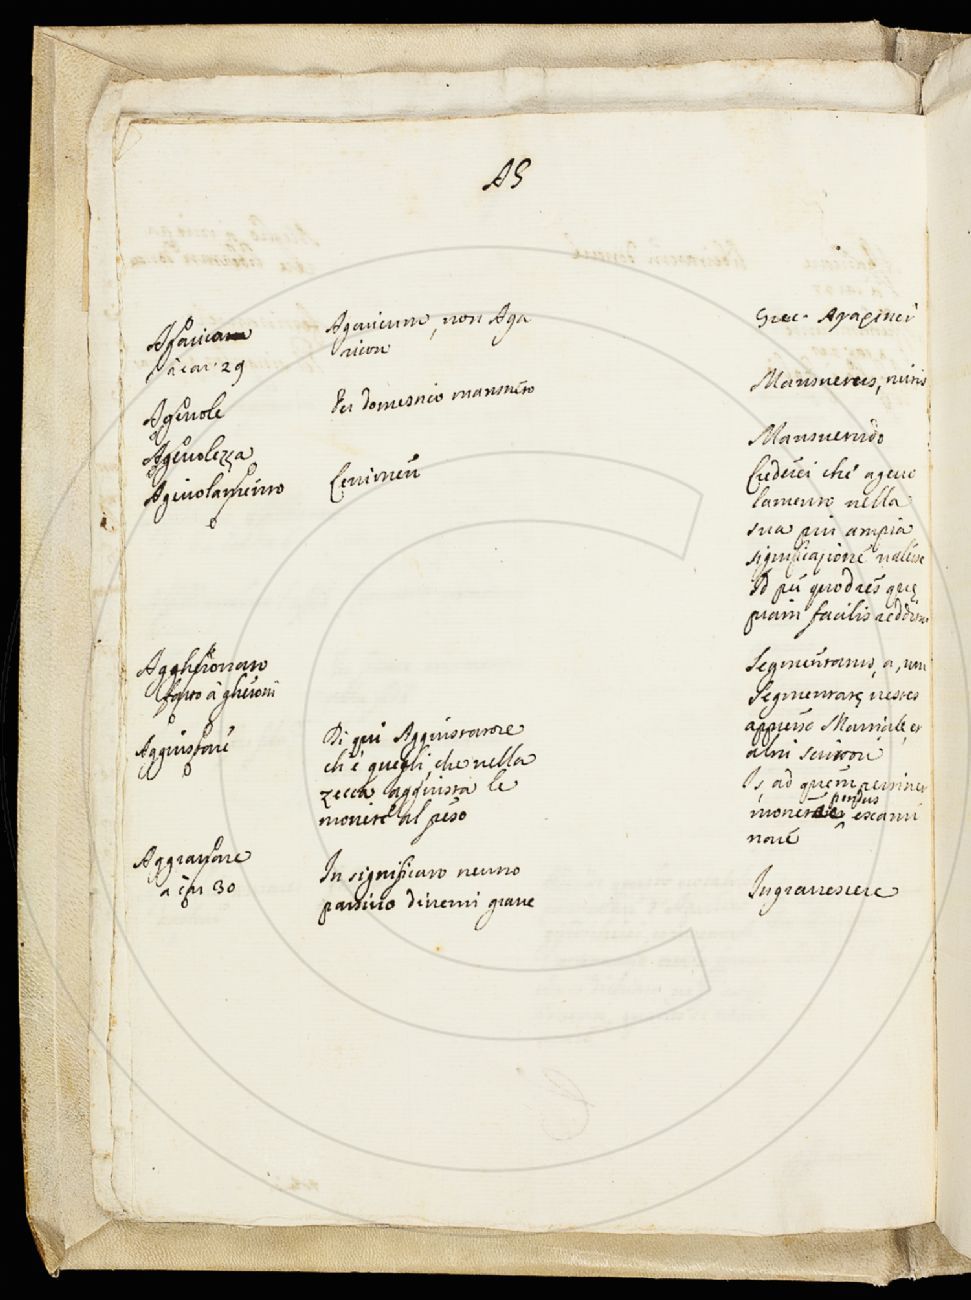 AG
Agarico
à car. 29
Agaricum, non Aga
ricon
Grec. Αγαρικόν
Agevole
Per domestico mansueto
Mansuetus, mitis
Agevolezza
Mansuetudo
Agevolamento
Lenimen
Crederei che agevo
lamento nella
sua piu ampia
significazione valesse
Id per quod res quę
piam facilis redditur
Aggheronato
fatto à gheroni
Segmentatus, a, um
Segmentatę vestes
appresso Marziale, et
altri scrittori
Aggiustare
Di qui Aggiustatore
ch'è quegli, che nella
zecca aggiusta le
monete al peso
Is, ad quem pertinet
monetae pondus exami
nare
Aggravare
a car 30
In significato neutro
passivo divenir grave
Ingravescere